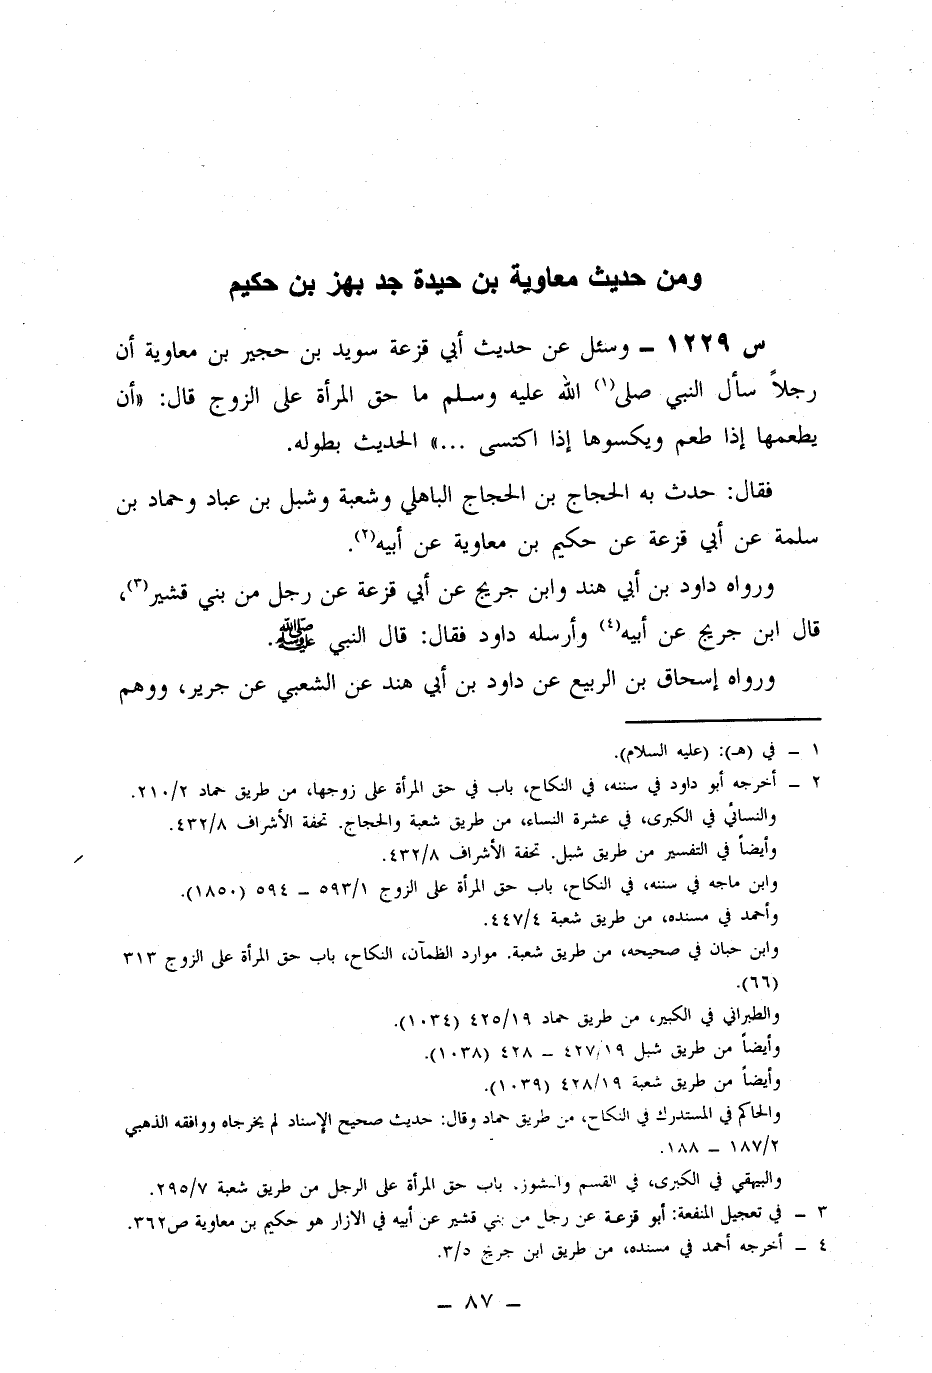 ومن حديث معاوية بن حيدة جد بهز بن حكيم
س ١٢٢٩ ـ وسئل عن حديث أبي قزعة سويد بن حجير بن معاوية أن
رجلاً سأل النبي صلى(١) الله عليه وسلم ما حق المرأة على الزوج قال: «أن
يطعمها إذا طعم ويكسوها إذا اكتسى ...» الحديث بطوله.
فقال: حدث به الحجاج بن الحجاج الباهلي وشعبة وشبل بن عباد وحماد بن
سلمة عن أبي قزعة عن حكيم بن معاوية عن أبيه(٢).
ورواه داود بن أبي هند وابن جريج عن أبي قزعة عن رجل من بني قشير(٣)،
قال ابن جريج عن أبيه(٤) وأرسله داود فقال: قال النبي ﷺ.
ورواه إسحاق بن الربيع عن داود بن أبي هند عن الشعبي عن جرير، ووهم
١ ـ في (هـ): (عليه السلام).
٢ ـ أخرجه أبو داود في سننه، في النكاح، باب في حق المرأة على زوجها، من طريق حماد ٢١٠/٢.
والنسائي في الكبرى، في عشرة النساء، من طريق شعبة والحجاج. تحفة الأشراف ٤٣٢/٨.
وأيضاً في التفسير من طريق شبل. تحفة الأشراف ٤٣٢/٨.
وابن ماجه في سننه، في النكاح، باب حق المرأة على الزوج ٥٩٣/١ ـ ٥٩٤ (١٨٥٠).
وأحمد في مسنده، من طريق شعبة ٤٤٧/٤.
وابن حبان في صحيحه، من طريق شعبة. موارد الظمآن، النكاح، باب حق المرأة على الزوج ٣١٣
(٦٦).
والطبراني في الكبير، من طريق حماد ٤٢٥/١٩ (١٠٣٤).
وأيضاً من طريق شبل ٤٢٧/١٩ ـ ٤٢٨ (١٠٣٨).
وأيضاً من طريق شعبة ٤٢٨/١٩ (١٠٣٩).
والحاكم في المستدرك في النكاح، من طريق حماد وقال: حديث صحيح الإسناد لم يخرجاه ووافقه الذهبي
١٨٧/٢ ـ ١٨٨.
والبيهقي في الكبرى، في القسم والنشوز. باب حق المرأة على الرجل من طريق شعبة ٢٩٥/٧.
٣ ـ في تعجيل المنفعة: أبو قزعة عن رجل من بني قشير عن أبيه في الازار هو حكيم بن معاوية ص٣٦٢.
٤ ـ أخرجه أحمد في مسنده، من طريق ابن جريج ٣/٥.
ـ ٨٧ ـ